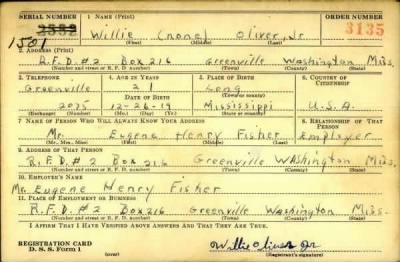 SERIAL NUMBER 1. NAME (Print) ORDER NUMBER
2532 Willie (none) Oliver, Jr 3135
1501 (First) (Middle) (Last)
2. ADDRESS (Print)
R.F.D. #2 Box 216 Greenville Washington Miss.
(Number and street or R. F. D. number) (Town) (County) (State)
3. TELEPHONE 4. AGE IN YEARS 5. PLACE OF BIRTH 6. COUNTRY OF CITIZENSHIP
Greenville 21 Long
DATE OF BIRTH
2075 12-26-19 Mississippi U.S.A.
(Exchange) (Number) (Mo.) (Day) (Yr.) (State or country)
7. NAME OF PERSON WHO WILL ALWAYS KNOW YOUR ADDRESS 8. RELATIONSHIP OF THAT PERSON
Mr. Eugene Henry Fisher Employer
(Mr., Mrs., Miss) (First) (Middle) (Last)
9. ADDRESS OF THAT PERSON
R.F.D. #2 Box 216 Greenville Washington Miss.
(Number and street or R. F. D. number) (Town) (County) (State)
10. EMPLOYER'S NAME
Mr. Eugene Henry Fisher
11. PLACE OF EMPLOYMENT OR BUSINESS
R.F.D. #2 Box 216 Greenville Washington Miss.
(Number and street or R. F. D. number) (Town) (County) (State)
I AFFIRM THAT I HAVE VERIFIED ABOVE ANSWERS AND THAT THEY ARE TRUE.
REGISTRATION CARD Willie Oliver Jr
D. S. S. Form 1 (over) (Registrant's signature)